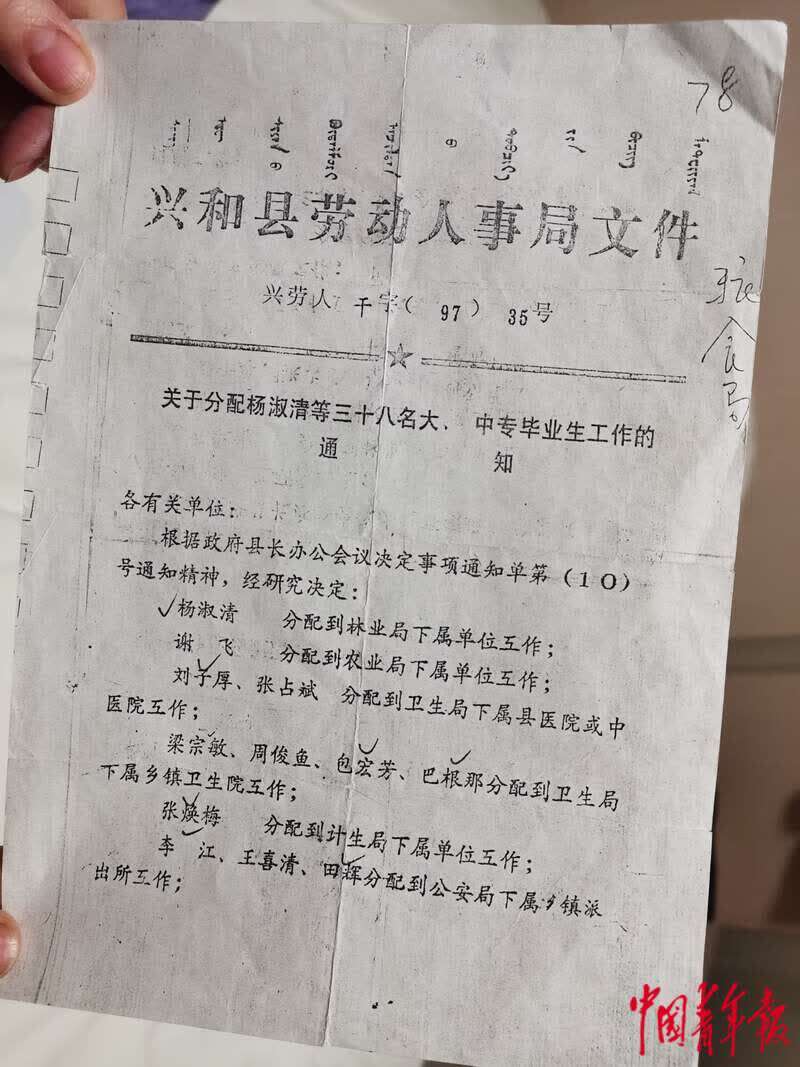 78
兴和县劳动人事局文件
兴劳人 干字( 97) 35号
关于分配杨淑清等三十八名大、 中专毕业生工作的
通 知
各有关单位:
根据政府县长办公会议决定事项通知单第(10)
号通知精神,经研究决定:
杨淑清 分配到林业局下属单位工作;
谢 飞 分配到农业局下属单位工作;
刘子厚、张占斌 分配到卫生局下属县医院或中
医院工作;
梁宗敏、周俊鱼、包宏芳、巴根那分配到卫生局
下属乡镇卫生院工作;
张焕梅 分配到计生局下属单位工作;
李 江、王喜清、田辉分配到公安局下属乡镇派
出所工作;
食局
中国青年报